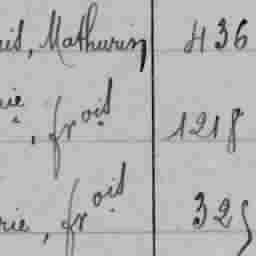 uis, Mathurin 436
rie, frois 1218
rie, frois 325